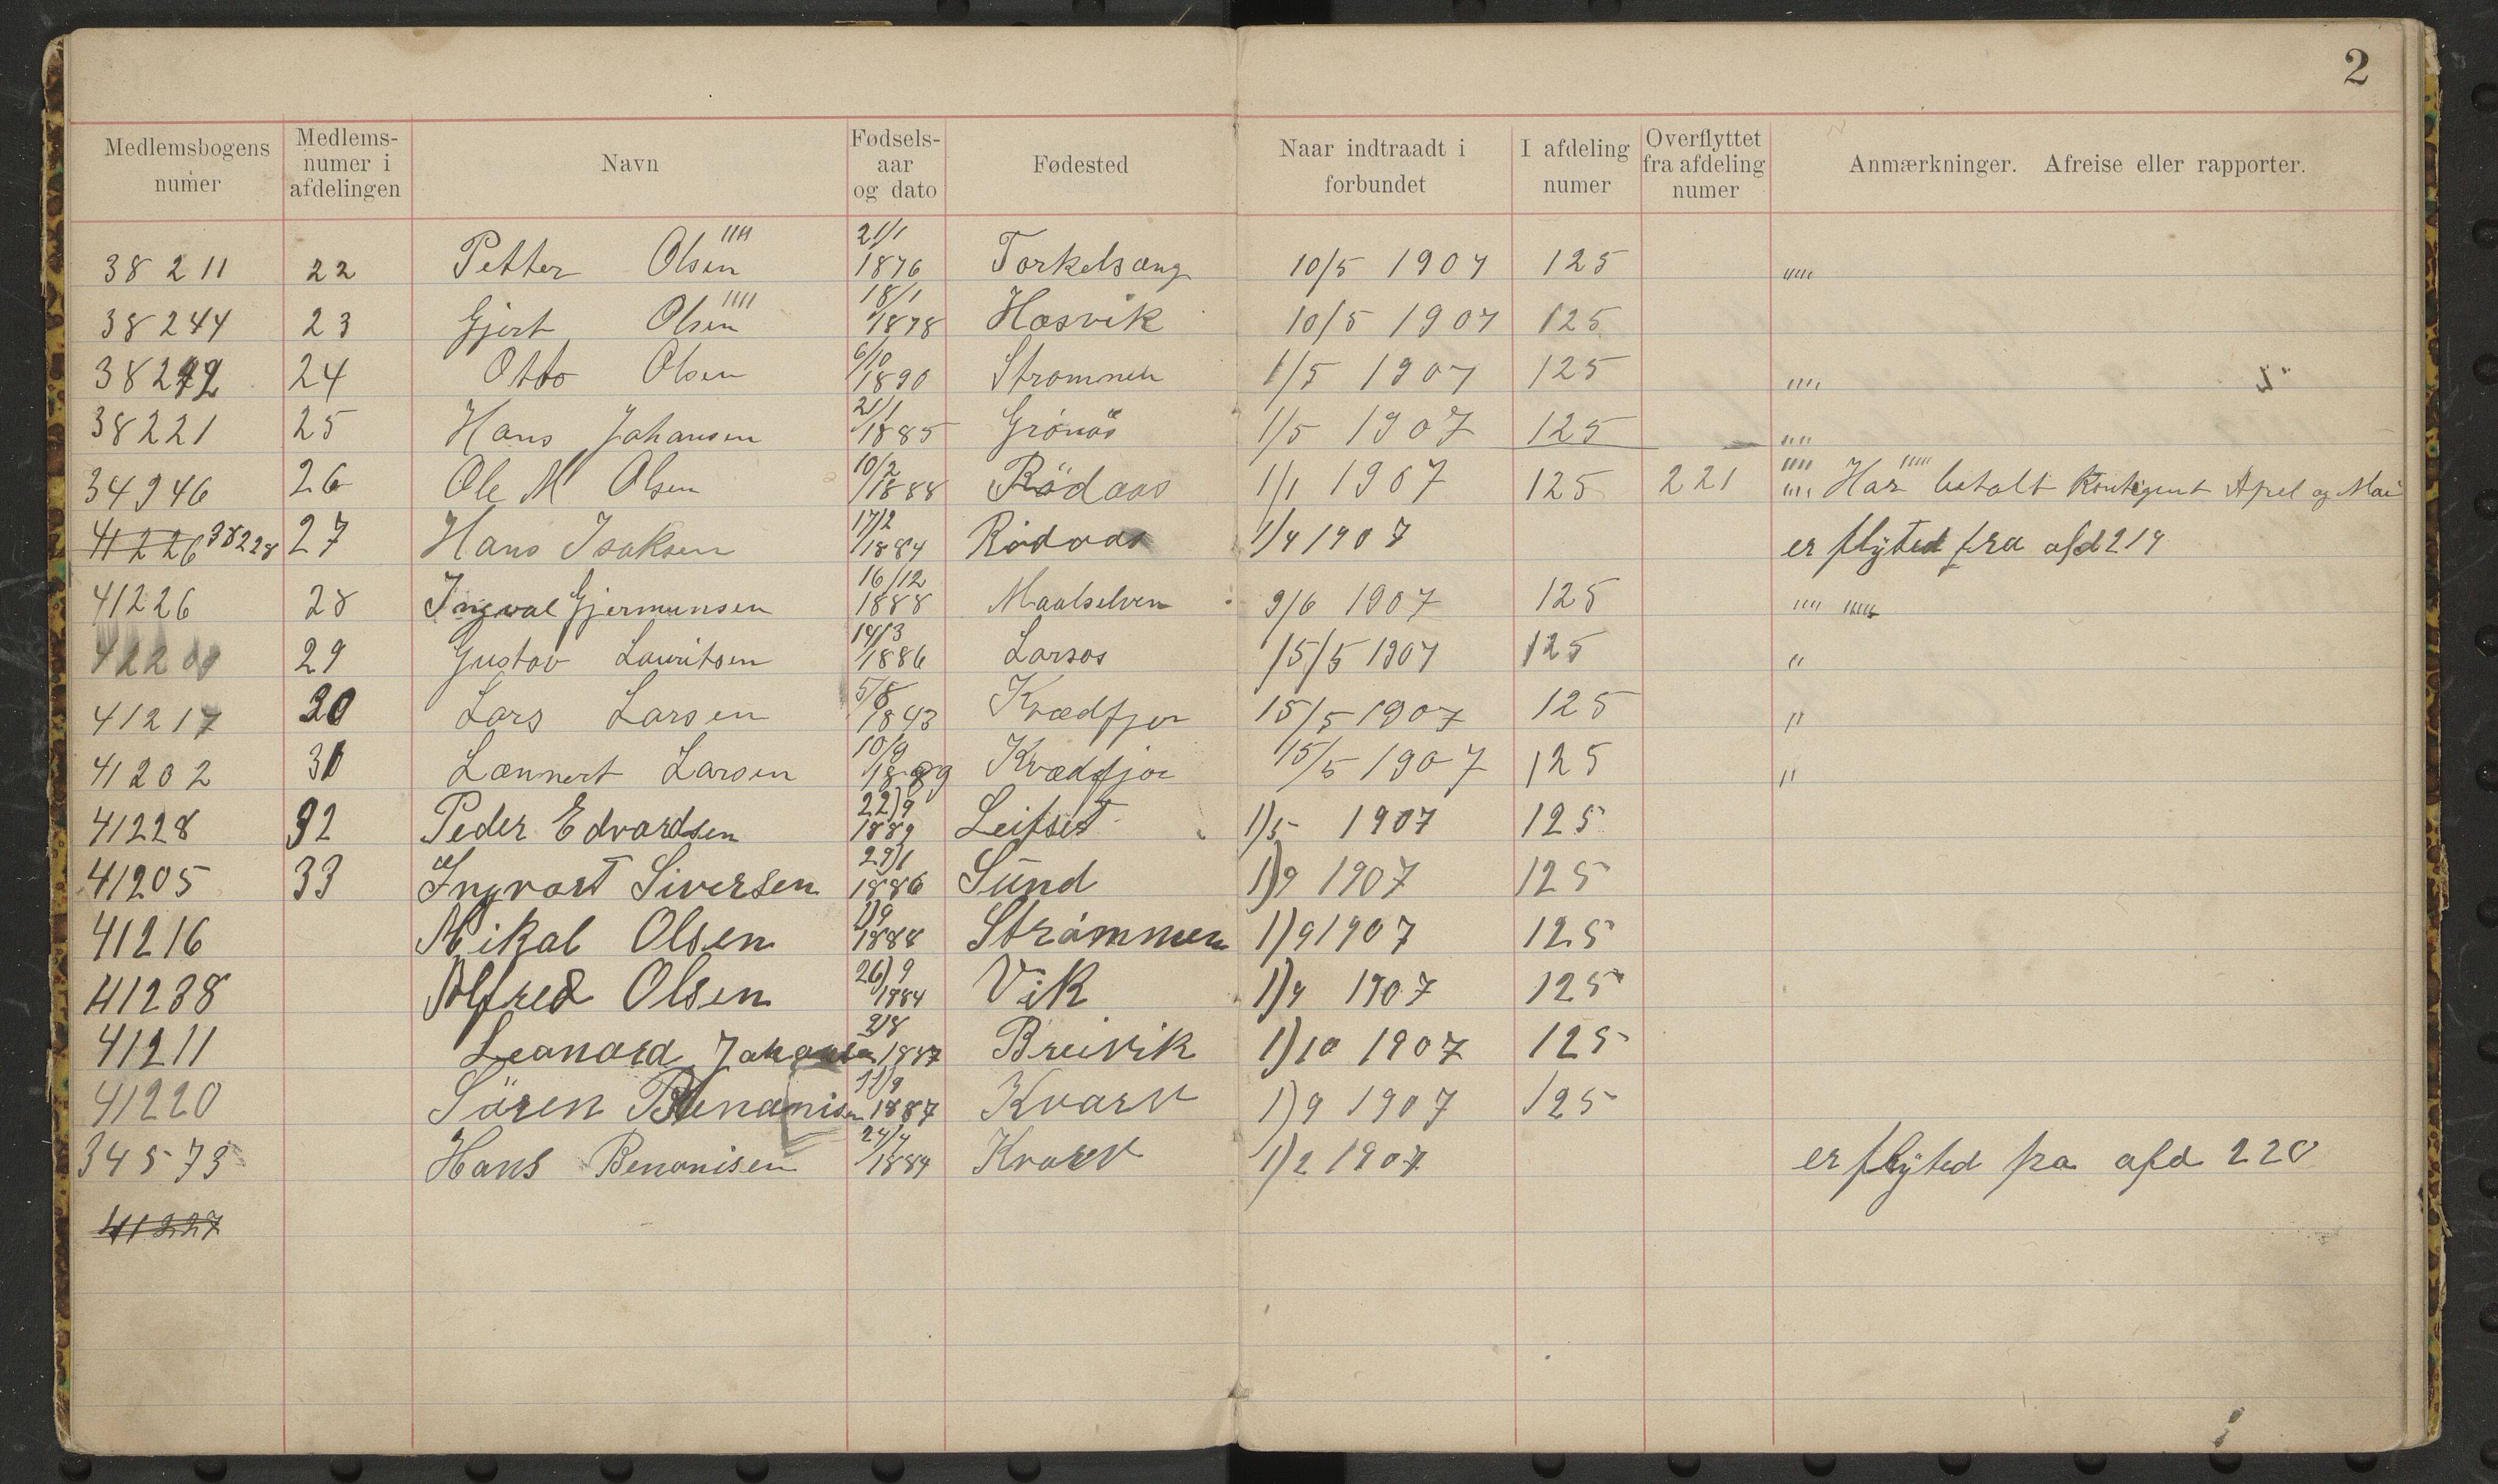 2
Medlemsbogens numer
Medlems-numer i afdelingen
Navn
Fødsels-aar og dato
Fødested
Naar indtraadt i forbundet
I afdeling numer
Overflyttet fra afdeling numer
Anmærkninger. Afreise eller rapporter.
38211 22 Petter Olsen 21/1 1876 10/5 1907 125 ""
38244 23 Gjert Olsen 18/1 1878 Hasvik 10/5 1907 125
24 Otto Olsen 6/10 1890 Strømmen 1/5 1907 125 ""
38221 25 Hans Johansen 21/1 1885 Grönås 1/5 1907 125 ""
34946 26 Ole M Olsen 10/2 1888 Rödaas 1/1 1907 125 221 "" Har betalt Kontigent Apel og Mai
41226 38228 27 Hans Isaksen 17/2 1884 Rödaas 1/9 1907 er flÿted fra afd 219
41226 28 Ingval Gjermunsen 16/12 1888 Maalselven 9/6 1907 125 ""
29 Gustav Lauritsen 14/3 1886 Larsos 15/5 1907 125 "
41217 30 Lars Larsen 5/8 1843 Kvædfjor 15/5 1907 125 "
41202 31 Lennert Larsen 10/9 1889 Kvædfjor 15/5 1907 125 "
41228 32 Peder Edvardsen 22)9 1889 Leifset 1)5 1907 125
41205 33 Ingvart Siversen 29)1 1886 Sund 1)9 1907 125
41216 Mikal Olsen 1)9 1888 Strømmen 1)9 1907 125
41238 Alfred Olsen 26)9 1884 Vik 1)9 1907 125
41211 Leanard Johansen 2/8 1887 Breivik 1)10 1907 125
41220 Sören Benonisen 11/9 1887 Kvarv 1)9 1907 125
34573 Hans Benonisen 24/4 1884 Kvarv 1)2 1907 er flÿted fra afd 220
41227